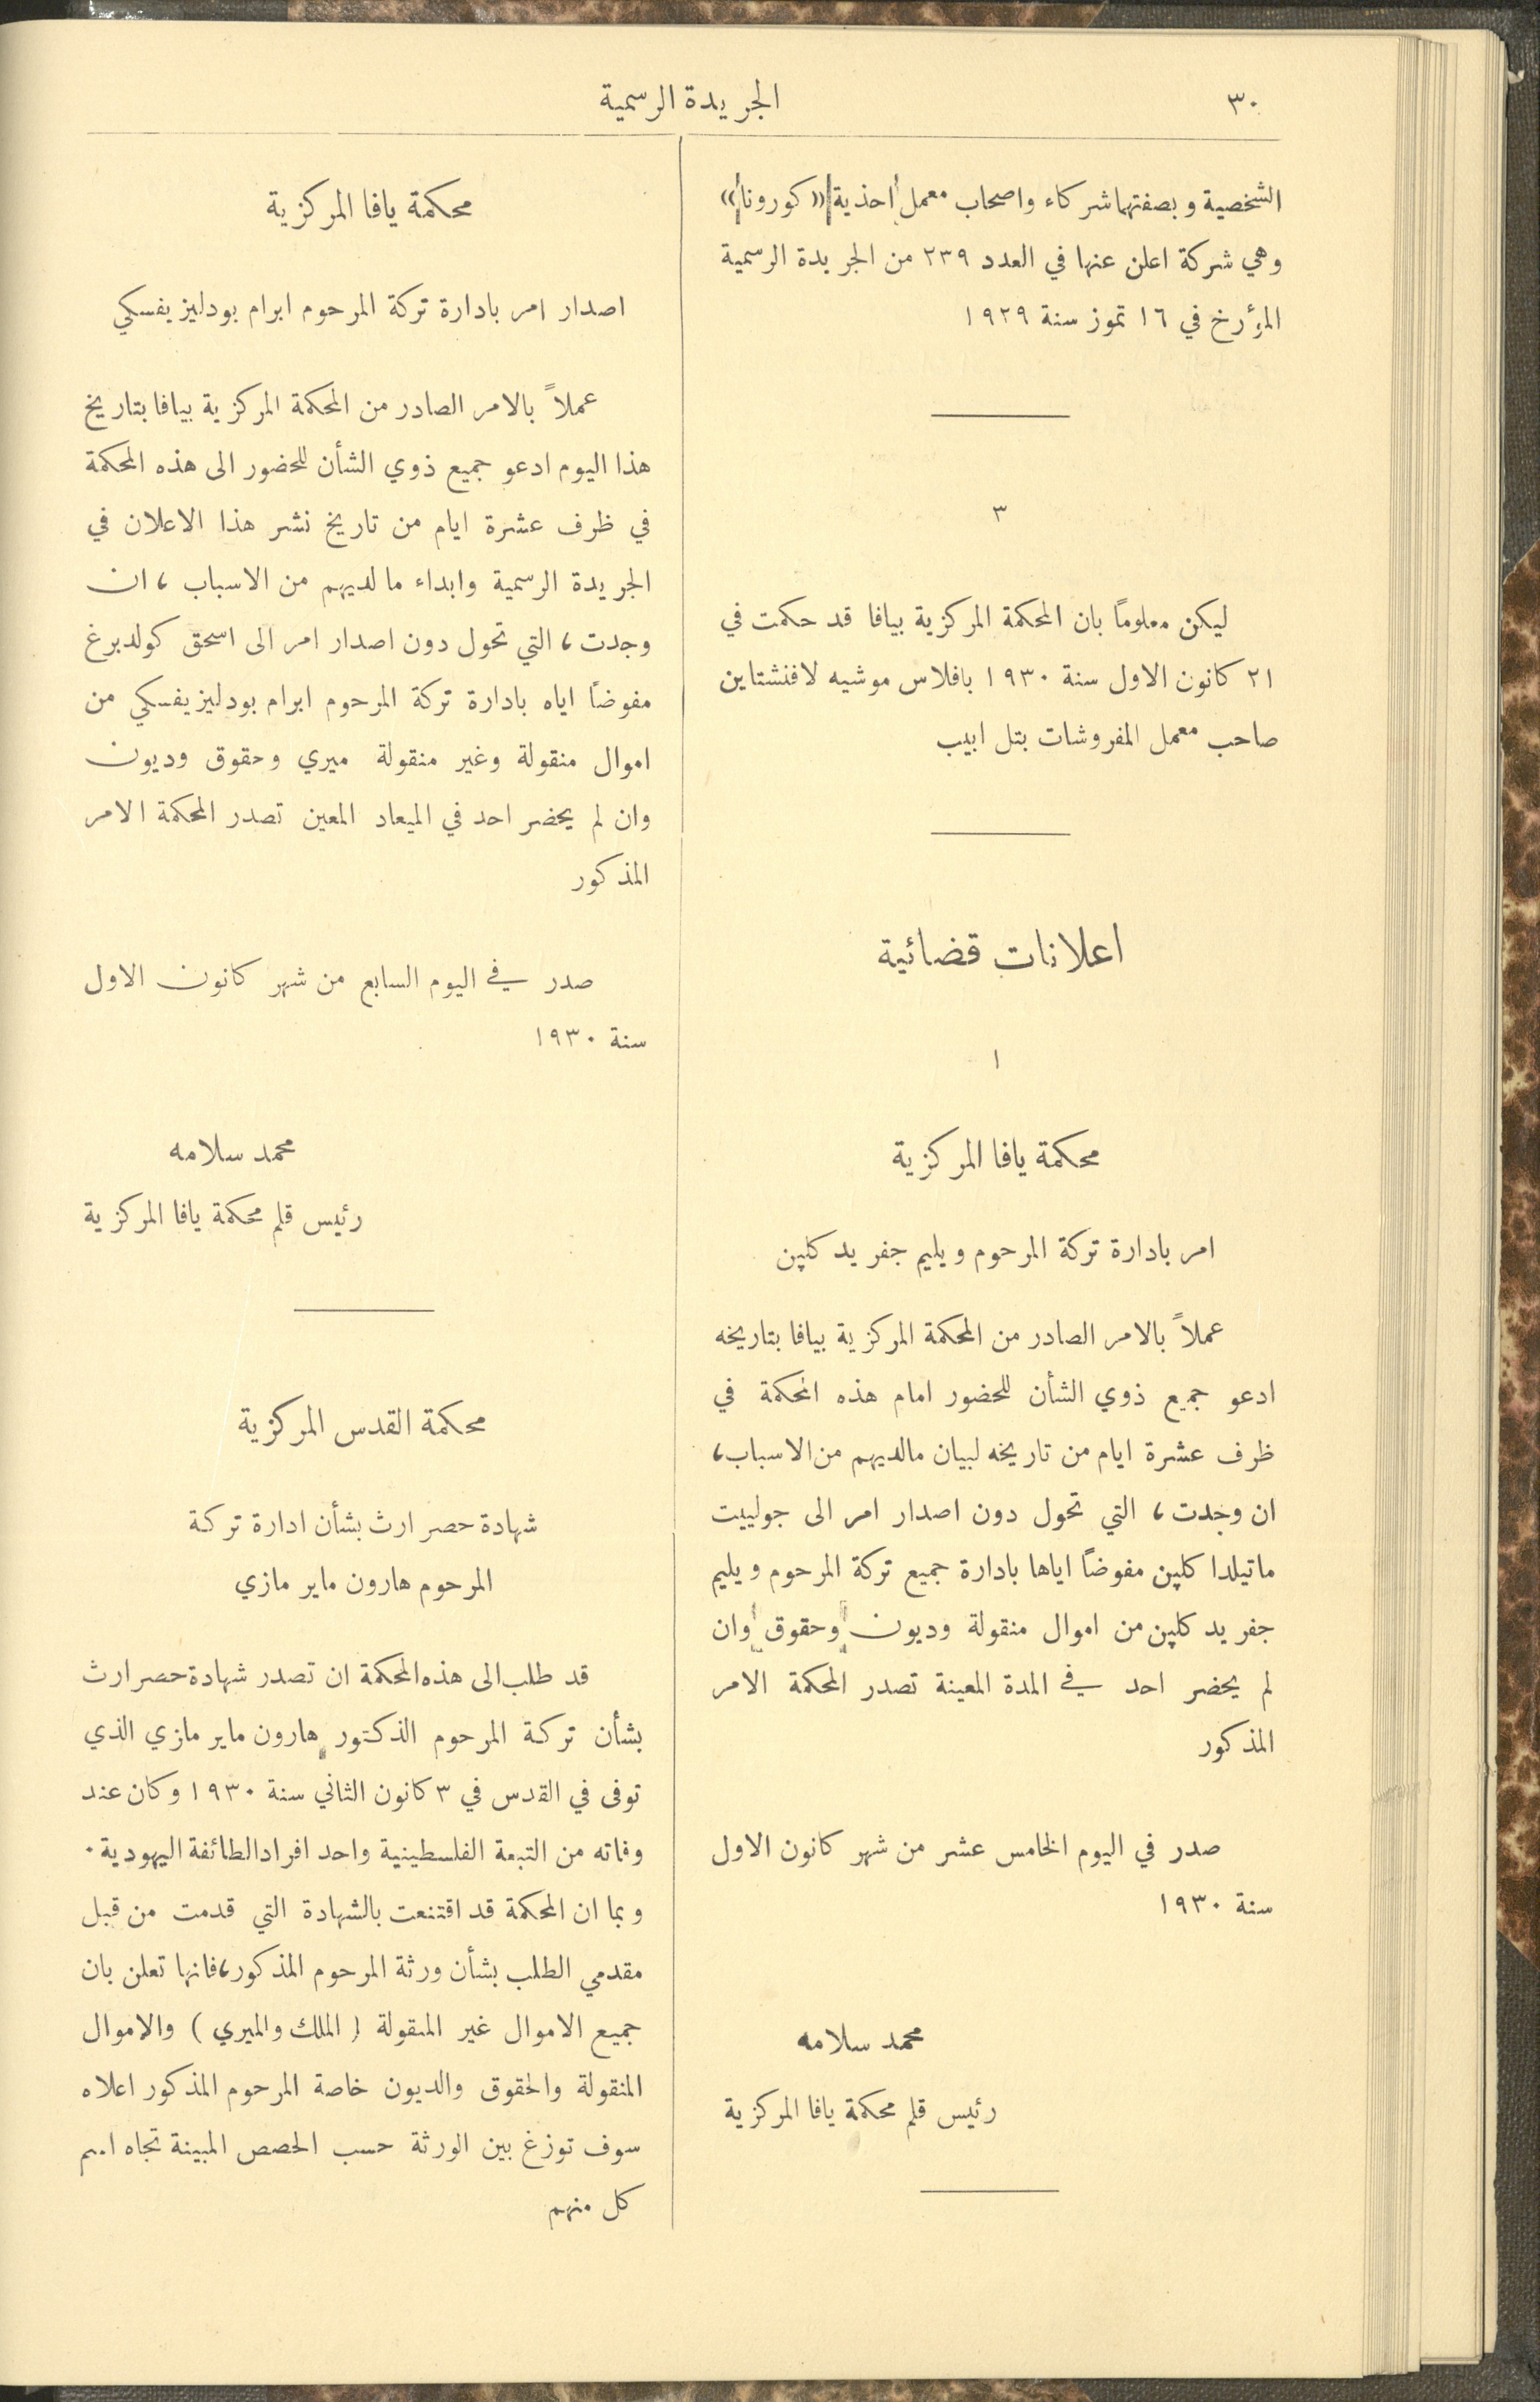 ٣٠
الجريدة الرسمية
الشخصية وبصفتهما شركاء واصحاب معمل احذية «كورونا»
وهي شركة اعلن عنها في العدد ٢٣٩ من الجريدة الرسمية
المؤرخ في ١٦ تموز سنة ١٩٢٩
٣
ليكن معلوماً بان المحكمة المركزية بيافا قد حكمت في
٢١ كانون الاول سنة ١٩٣٠ بافلاس موشيه لافنشتاين
صاحب معمل المفروشات بتل ابيب
اعلانات قضائية
١
محكمة يافا المركزية
امر بادارة تركة المرحوم ويليم جفريد كلپن
عملاً بالامر الصادر من المحكمة المركزية بيافا بتاريخه
ادعو جميع ذوي الشأن للحضور امام هذه المحكمة في
ظرف عشرة ايام من تاريخه لبيان مالديهم من الاسباب،
ان وجدت، التي تحول دون اصدار امر الى جولييت
ماتيلدا كلپن مفوضاً اياها بادارة جميع تركة المرحوم ويليم
جفريد كلپن من اموال منقولة وديون وحقوق وان
لم يحضر احد في المدة المعينة تصدر المحكمة الامر
المذكور
صدر في اليوم الخامس عشر من شهر كانون الاول
سنة ١٩٣٠
محمد سلامه
رئيس قلم محكمة يافا المركزية
محكمة يافا المركزية
اصدار امر بادارة تركة المرحوم ابرام بودليزيفسكي
عملاً بالامر الصادر من المحكمة المركزية بيافا بتاريخ
هذا اليوم ادعو جميع ذوي الشأن للحضور الى هذه المحكمة
في ظرف عشرة ايام من تاريخ نشر هذا الاعلان في
الجريدة الرسمية وابداء ما لديهم من الاسباب، ان
وجدت، التي تحول دون اصدار امر الى اسحق كولدبرغ
مفوضاً اياه بادارة تركة المرحوم ابرام بودليزيفسكي من
اموال منقولة وغير منقولة ميري وحقوق وديون
وان لم يحضر احد في الميعاد المعين تصدر المحكمة الامر
المذكور
صدر في اليوم السابع من شهر كانون الاول
سنة ١٩٣٠
محمد سلامه
رئيس قلم محكمة يافا المركزية
محكمة القدس المركزية
شهادة حصر ارث بشأن ادارة تركة
المرحوم هارون ماير مازي
قد طلب الى هذه المحكمة ان تصدر شهادة حصر ارث
بشأن تركة المرحوم الذكتور هارون ماير مازي الذي
توفى في القدس في ٣ كانون الثاني سنة ١٩٣٠ وكان عند
وفاته من التبعة الفلسطينية واحد افراد الطائفة اليهودية.
وبما ان المحكمة قد اقتنعت بالشهادة التي قدمت من قبل
مقدمي الطلب بشأن ورثة المرحوم المذكور، فانها تعلن بان
جميع الاموال غير المنقولة (الملك والميري) والاموال
المنقولة والحقوق والديون خاصة المرحوم المذكور اعلاه
سوف توزغ بين الورثة حسب الحصص المبينة تجاه اسم
كل منهم